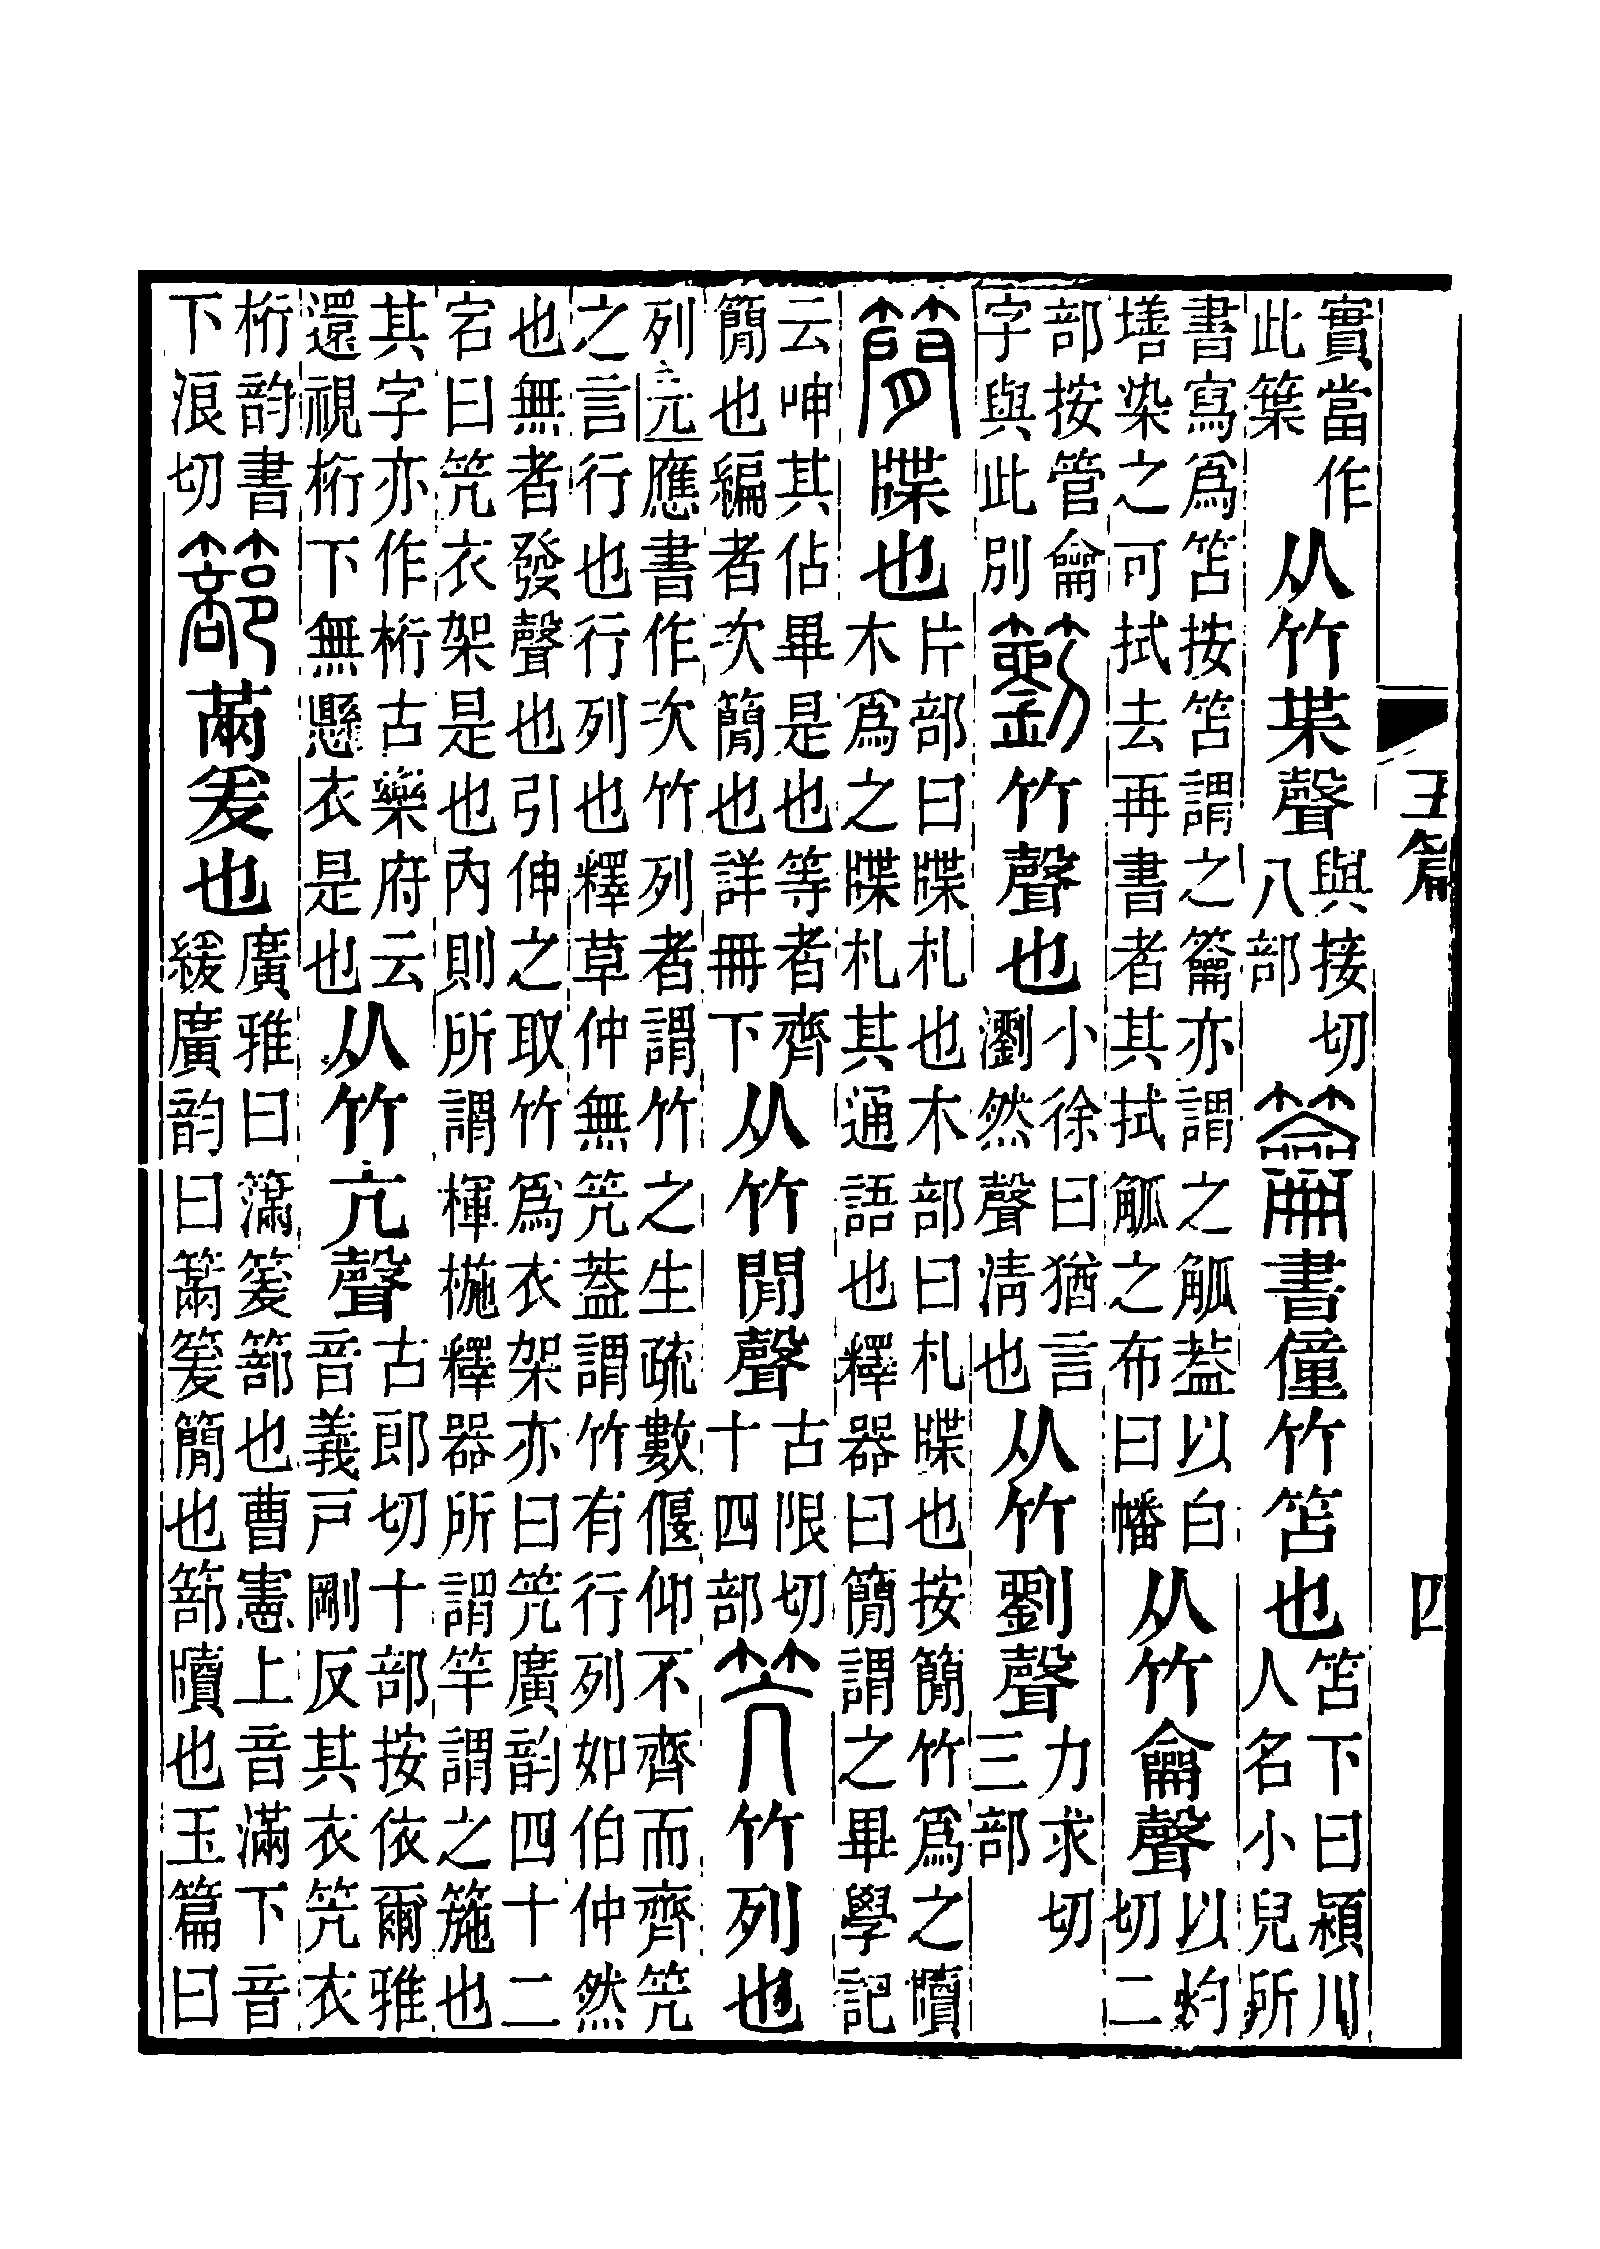 實當作此䈎从竹枼聲與接切八部籥書僮竹笘也笘下曰潁川人名小兒所
書寫爲笘按笘謂之籥亦謂之觚葢以白墡染之可拭去再書者其拭觚之布曰幡从竹龠聲以灼切二
部按管龠字與此別䉧竹聲也小徐曰猶言瀏然聲淸也从竹劉聲力求切三部
簡牒也片部曰牒札也木部曰札牒也按簡竹爲之牘木爲之牒札其通語也釋器曰簡謂之畢學記
云呻其佔畢是也等者齊簡也編者次簡也詳冊下从竹閒聲古限切十四部笐竹列也
列亢應書作次竹列者謂竹之生疏數偃仰不齊而齊笐之言行也行列也釋草仲無笐葢謂竹有行列如伯仲然
也無者發聲也引伸之取竹爲衣架亦曰笐廣韵四十二宕曰笐衣架是也內則所謂楎椸釋器所謂竿謂之箷也
其字亦作桁古樂府云還視桁下無懸衣是也从竹亢聲古郎切十部按依爾雅音義戸剛反其衣笐衣
桁韵書下浪切篰㒼爰也廣雅曰䈵篰也曹憲上音滿下音緩廣韵曰䈵簡也篰牘也玉篇曰
五篇
四